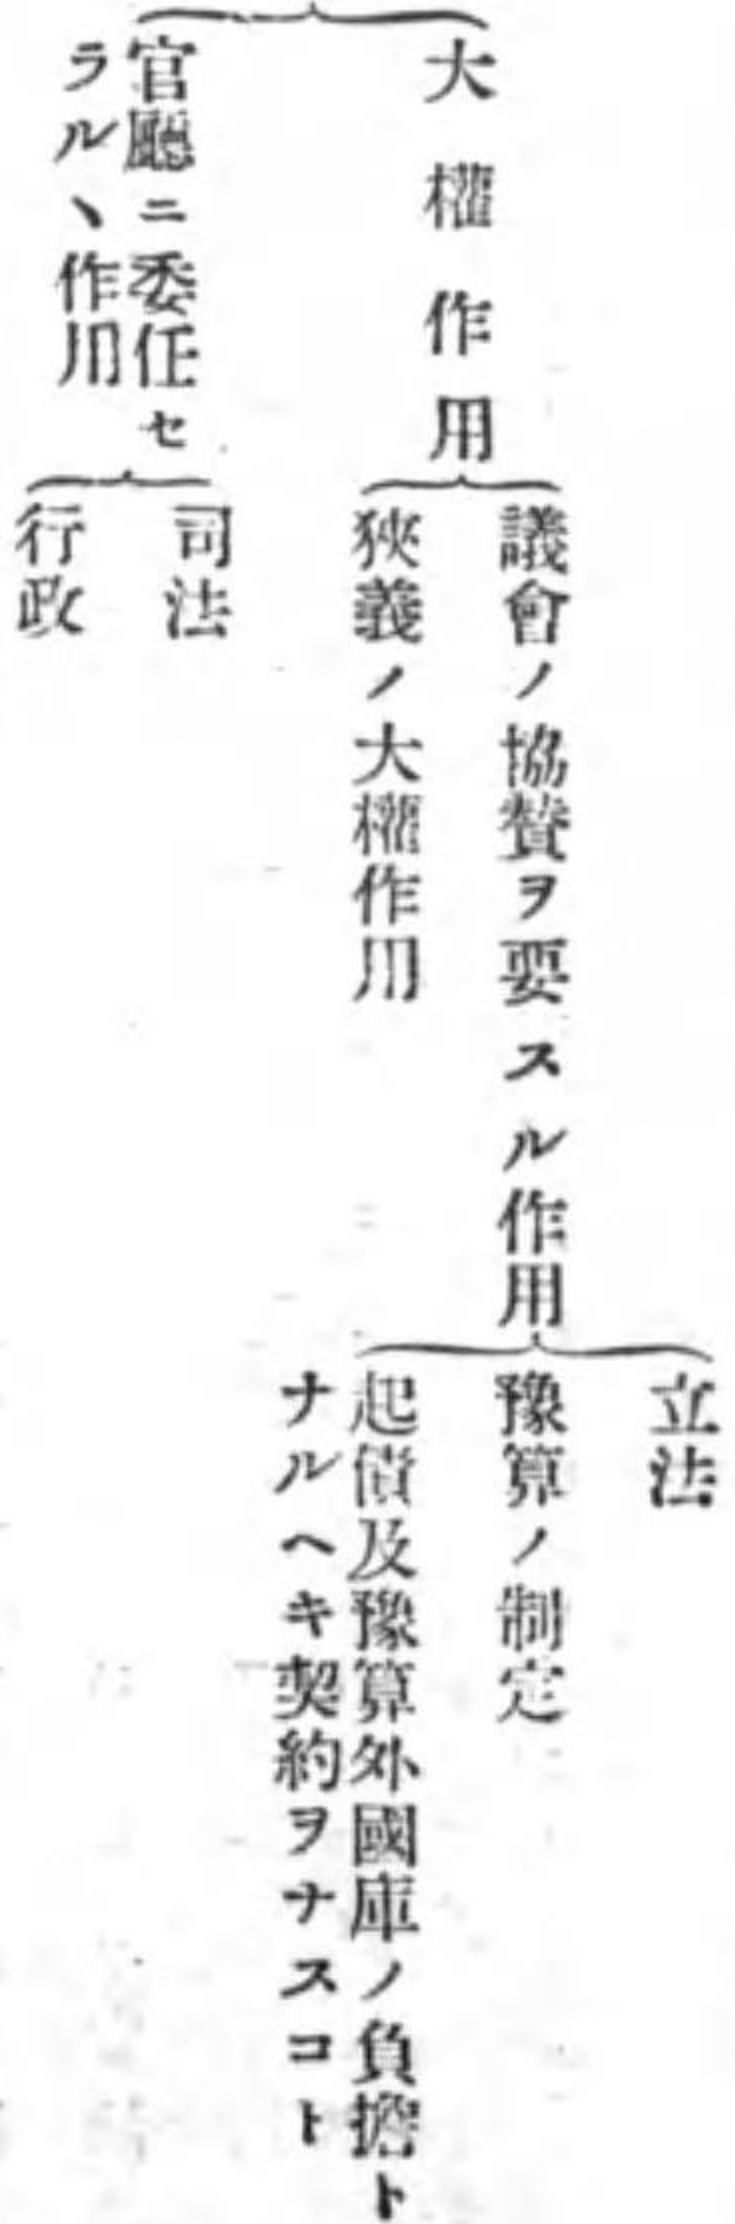 大權作用
議會ノ協贊ヲ要スル作用
立法
豫算ノ制定
起債及豫算外國庫ノ負擔ト
ナルヘキ契約ヲナスコト
狹義ノ大權作用
官廳ニ委任セ
ラルヽ作用
司法
行政